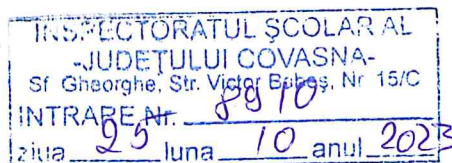 INSPECTORATUL ȘCOLAR AL
-JUDEȚULUI COVASNA-
Sf Gheorghe, Str. Victor Babeș, Nr 15/C
INTRARE Nr. 8910
ziua 25 luna 10 anul 2023